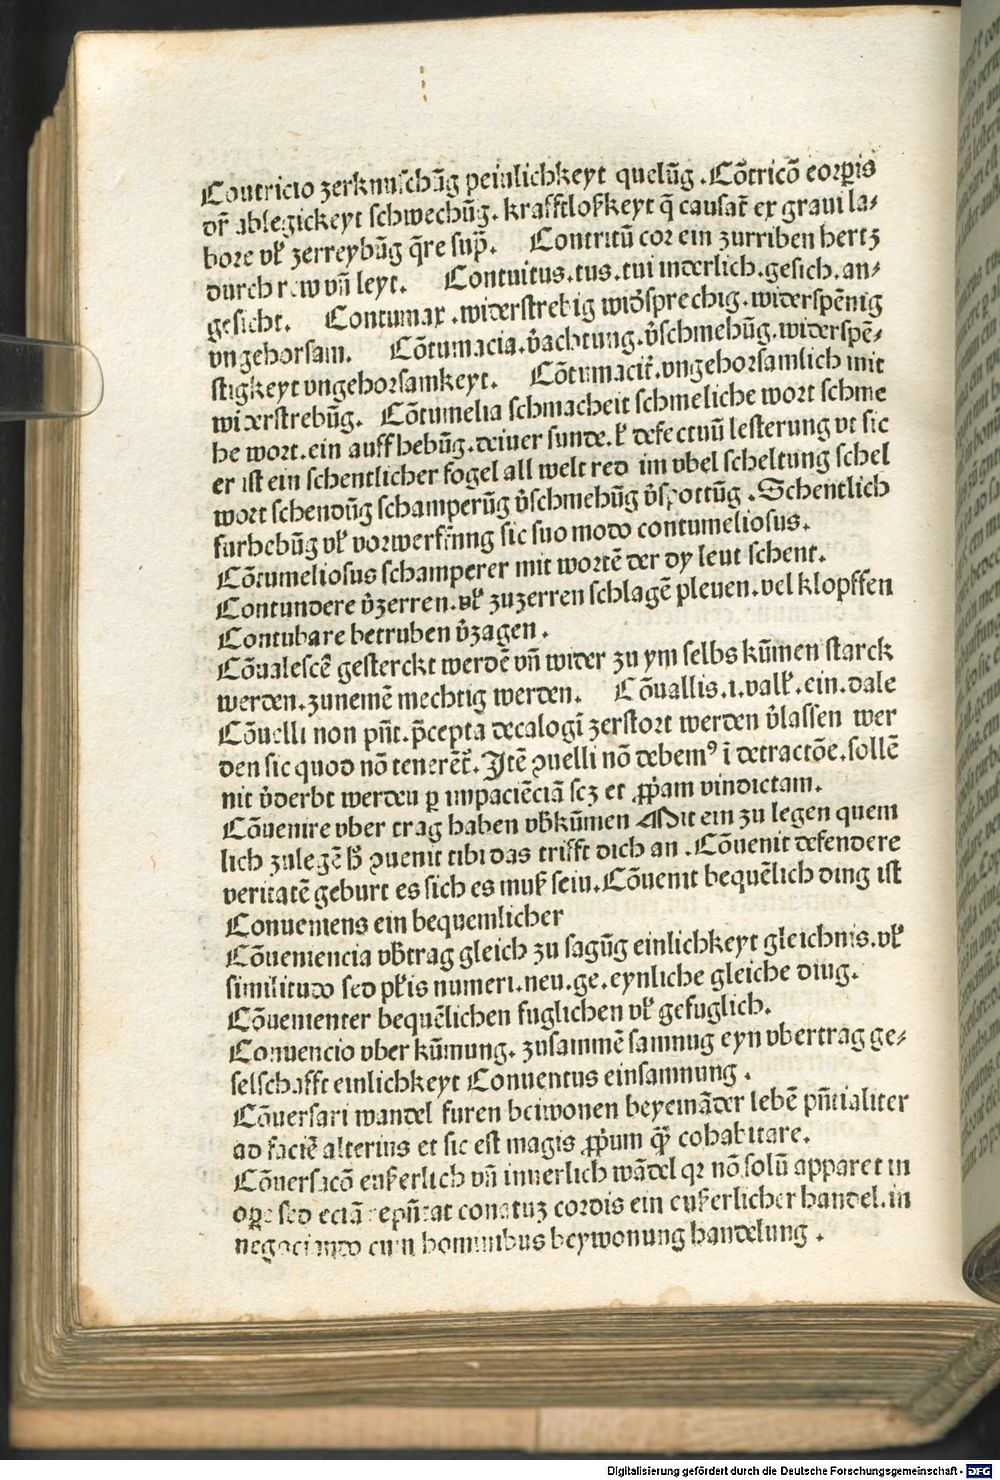 Contricio zerknuschūg peinlichkeyt quelūg. Cōtricō corꝑis
dr̄ ablegickeyt schwechūg. krafftloßkeyt q̄ causat̄ ex graui la-
bore vl̓ zerreybūg q̄re sup̄. Contritū cor ein zurriben hertz
durch rew vn̄ leyt. Contuitus.tus.tui innerlich.gesich.an-
gesicht. Contumax.widerstrebig wid̓sprechig.widerspēnig
vngehorsam. Cōtumacia.v̓achtung.v̓schmehūg.widerspē-
stigkeyt vngehorsamkeyt. Cōtumacit̄.vngehorsamlich mit
widerstrebūg. Cōtumelia schmacheit schmeliche wort schme
he wort.ein auffhebūg.deiner sunde.l̓ defectuū lesterung vt sic
er ist ein schentlicher fogel all welt red im vbel scheltung schel
wort schendūg schamperūg v̓schmehūg v̓spottūg. Schentlich
furhebūg vl̓ vorwerffnng sic suo modo contumeliosus.
Cōtumeliosus schamperer mit wortē der dy leut schent.
Contundere v̓zerren.vl̓ zuzerren schlagē pleuen.vel klopffen
Conturbare betruben v̓zagen.
Cōualescē gesterckt werdē vn̄ wider zu ym selbs kūmen starck
werden.zunemē mechtig werden. Cōuallis.i.vall̓.ein.dale
Cōuelli non pn̄t.p̄cepta decalogi zerstort werden v̓lassen wer
den sic quod nō tenerēt̄. Itē ꝯuelli nō debemꝰ ī detractōe.sollē
nit v̓derbt werden ꝑ impaciēciā scz et ꝓpam vindictam.
Cōuenire vber trag haben vb̓kūmen Mit ein zu legen quem
lich zulegē h̓ ꝯuenit tibi das trifft dich an. Cōuenit defendere
veritatē geburt es sich es muß sein. Cōuenit bequēlich ding ist
Conueniens ein bequemlicher
Cōueniencia vb̓trag gleich zu sagūg einlichkeyt gleichnis.vl̓
similitudo sed pl̓is numeri.neu.ge.eynliche gleiche ding.
Cōuenienter bequēlichen fuglichen vl̓ gefuglich.
Conuencio vber kūmung. zusammē samnug eyn vbertrag ge-
selschafft einlichkeyt Conuentus einsamnung.
Cōuersari wandel furen beiwonen beyeināder lebē pn̄tialiter
ad faciē alterius et sic est magis ꝓpum ꝙ̄ cohabitare.
Cōuersacō eußerlich vn̄ innerlich wādel qꝛ nō solū apparet in
oꝑe sed eciā repn̄tat conatuz cordis ein eußerlicher handel.in
negociando cum hominibus beywonung handelung.
Digitalisierung gefördert durch die Deutsche Forschungsgemeinschaft - DFG